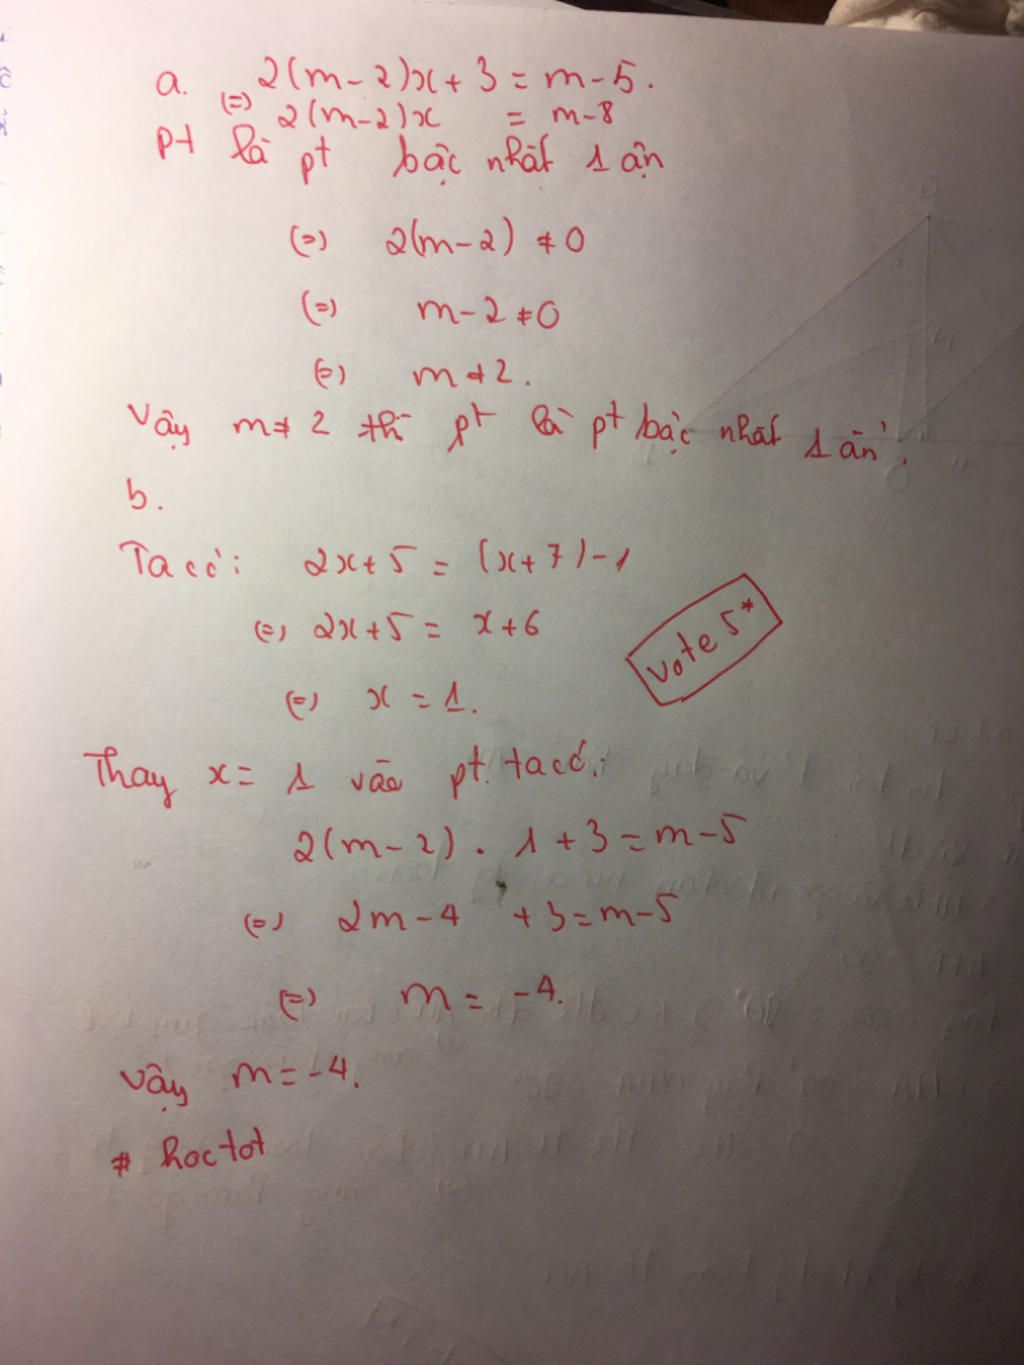 a. 2(m-2)x + 3 = m - 5.
(=) 2(m-2)x = m-8
pt là pt bậc nhất 1 ẩn
(=) 2(m-2) ≠ 0
(=) m-2 ≠ 0
(=) m ≠ 2.
Vậy m ≠ 2 thì pt là pt bậc nhất 1 ẩn.
b.
Ta có: 2x+5 = (x+7)-1
(=) 2x+5 = x+6
vote 5*
(=) x = 1.
Thay x = 1 vào pt ta có:
2(m-2). 1+3 = m-5
(=) 2m-4 +3 = m-5
(=) m = -4.
Vậy m = -4.
# hoctot